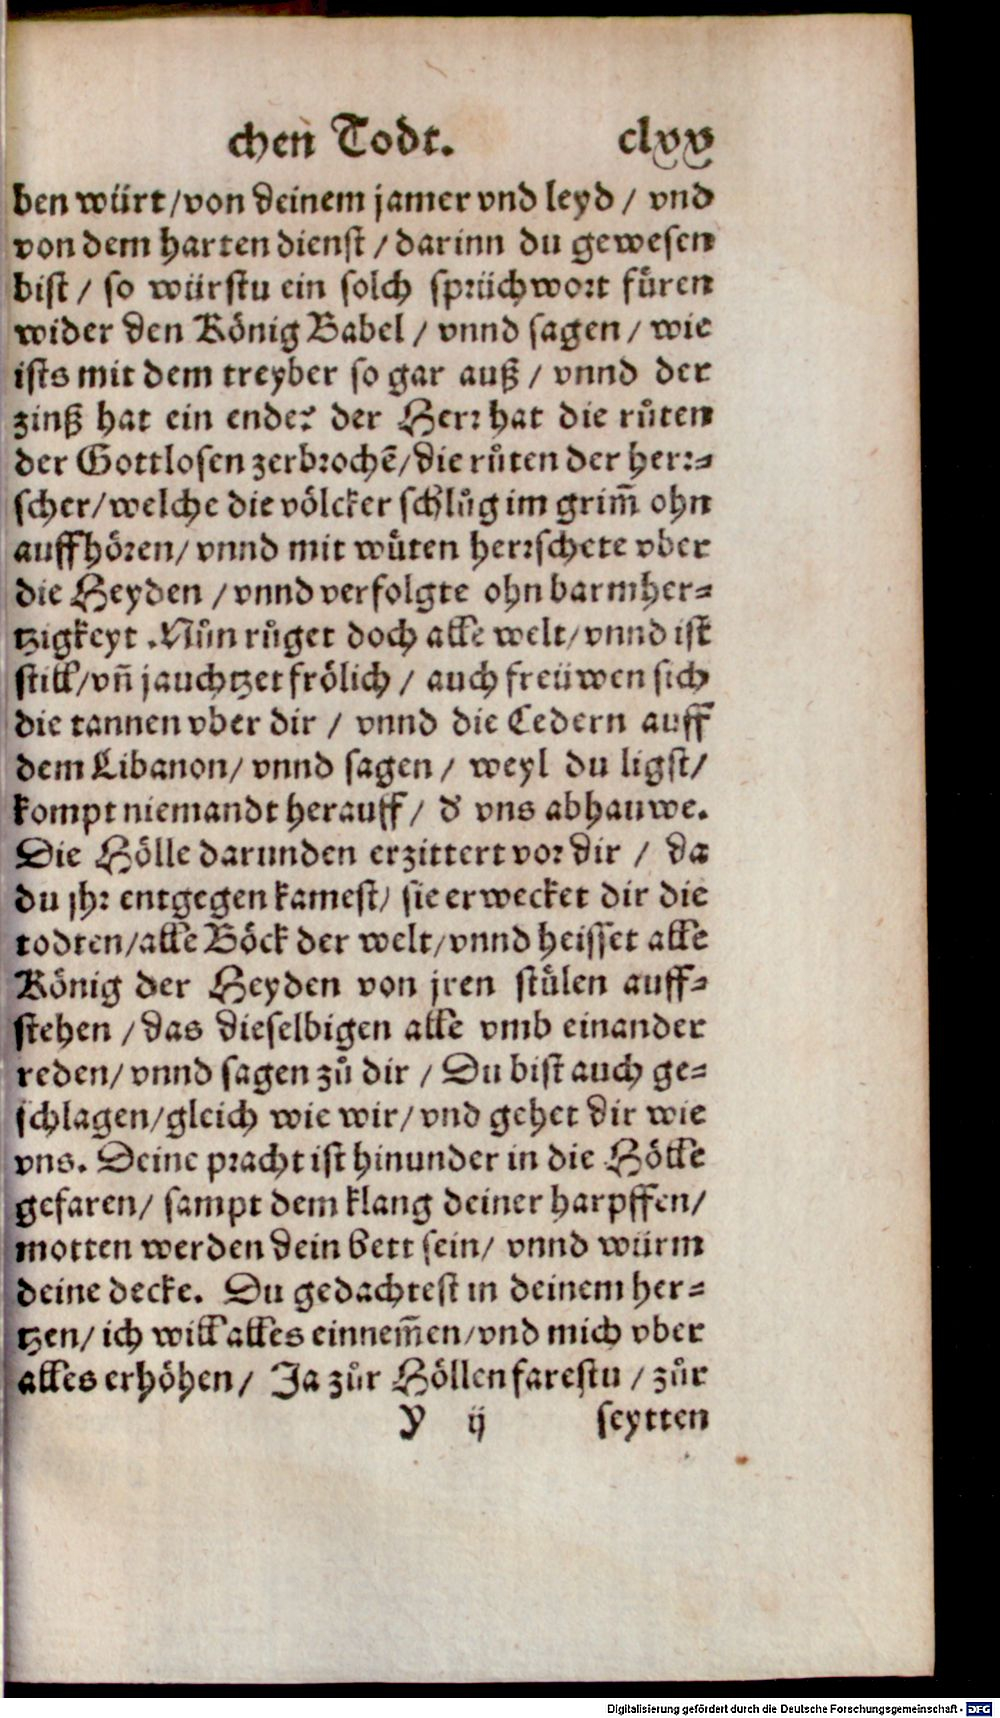 chen Todt. clxx
ben würt/von deinem jamer vnd leyd / vnd
von dem harten dienst / darinn du gewesen
bist / so würstu ein solch sprüchwort fůren
wider den König Babel / vnnd sagen / wie
ists mit dem treyber so gar auß / vnnd der
zinß hat ein ende? der Herr hat die růten
der Gottlosen zerbrochē/die růten der herr-
scher/welche die völcker schlůg im grim̃ ohn
auffhören/ vnnd mit wůten herrschete vber
die Heyden / vnnd verfolgte ohn barmher-
tzigkeyt . Nůn růget doch alle welt/vnnd ist
still/vñ jauchtzet frölich / auch freüwen sich
die tannen vber dir / vnnd die Cedern auff
dem Libanon/ vnnd sagen / weyl du ligst/
kompt niemandt herauff / đ vns abhauwe.
Die Hölle darunden erzittert vor dir / da
du jhr entgegen kamest/ sie erwecket dir die
todten/alle Böck der welt/vnnd heisset alle
König der Heyden von jren stůlen auff-
stehen / das dieselbigen alle vmb einander
reden/ vnnd sagen zů dir / Du bist auch ge-
schlagen/gleich wie wir/ vnd gehet dir wie
vns. Deine pracht ist hinunder in die Hölle
gefaren/ sampt dem klang deiner harpffen/
motten werden dein bett sein/ vnnd würm
deine decke. Du gedachtest in deinem her-
tzen/ ich will alles einnem̃en/vnd mich vber
alles erhöhen/ Ja zůr Höllen farestu / zůr
Y ij seytten
Digitalisierung gefördert durch die Deutsche Forschungsgemeinschaft - DFG